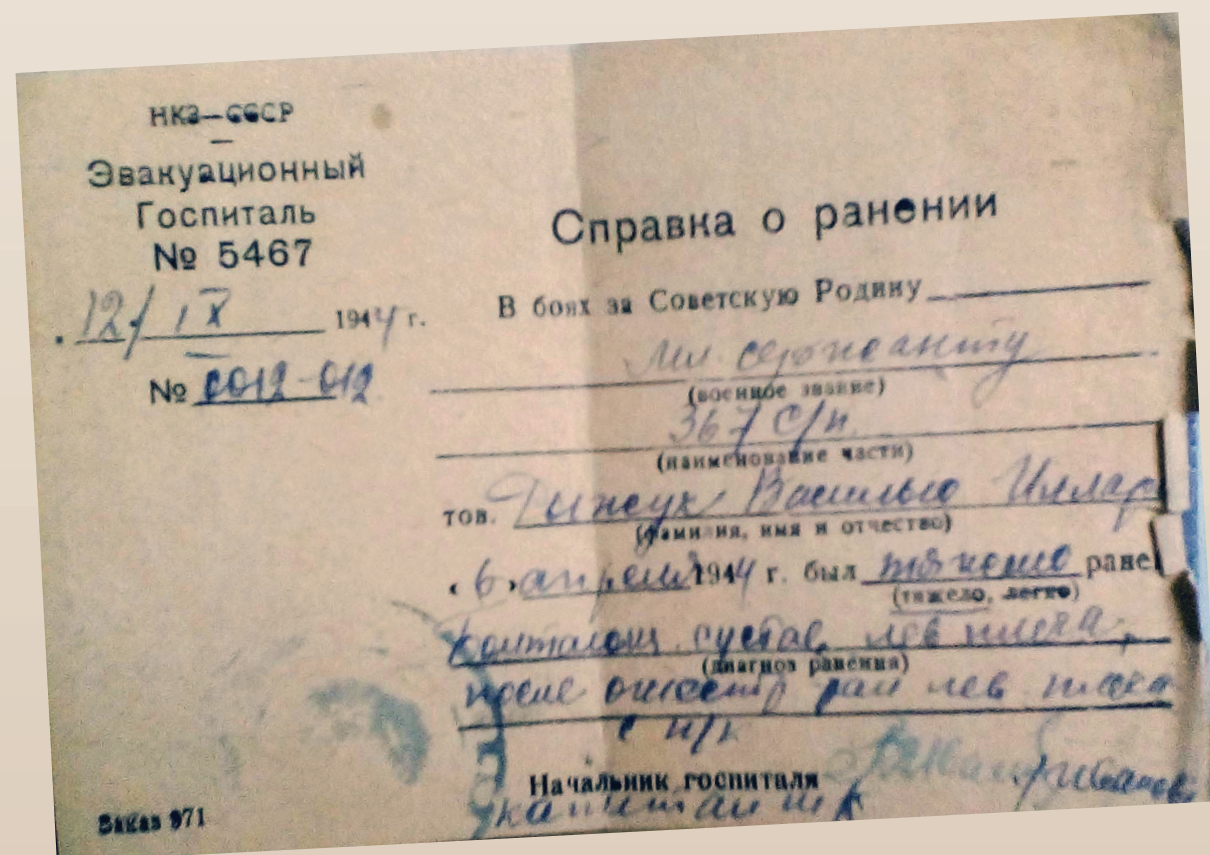 НКЗ—СССР
Эвакуационный
Госпиталь
№ 5467
12/IX 1944 г.
№ 0012-012
Справка о ранении
В боях за Советскую Родину
мл. сержанту
(военное звание)
367 с/п.
(наименование части)
тов. Василью Иллар
(фамилия, имя и отчество)
«6» апреля 1944 г. был тяжело ране
(тяжело, легко)
сустав лев плеча,
(диагноз ранения)
после ран лев плеча
с п/к
Начальник госпиталя
капитан м/с
Заказ 971